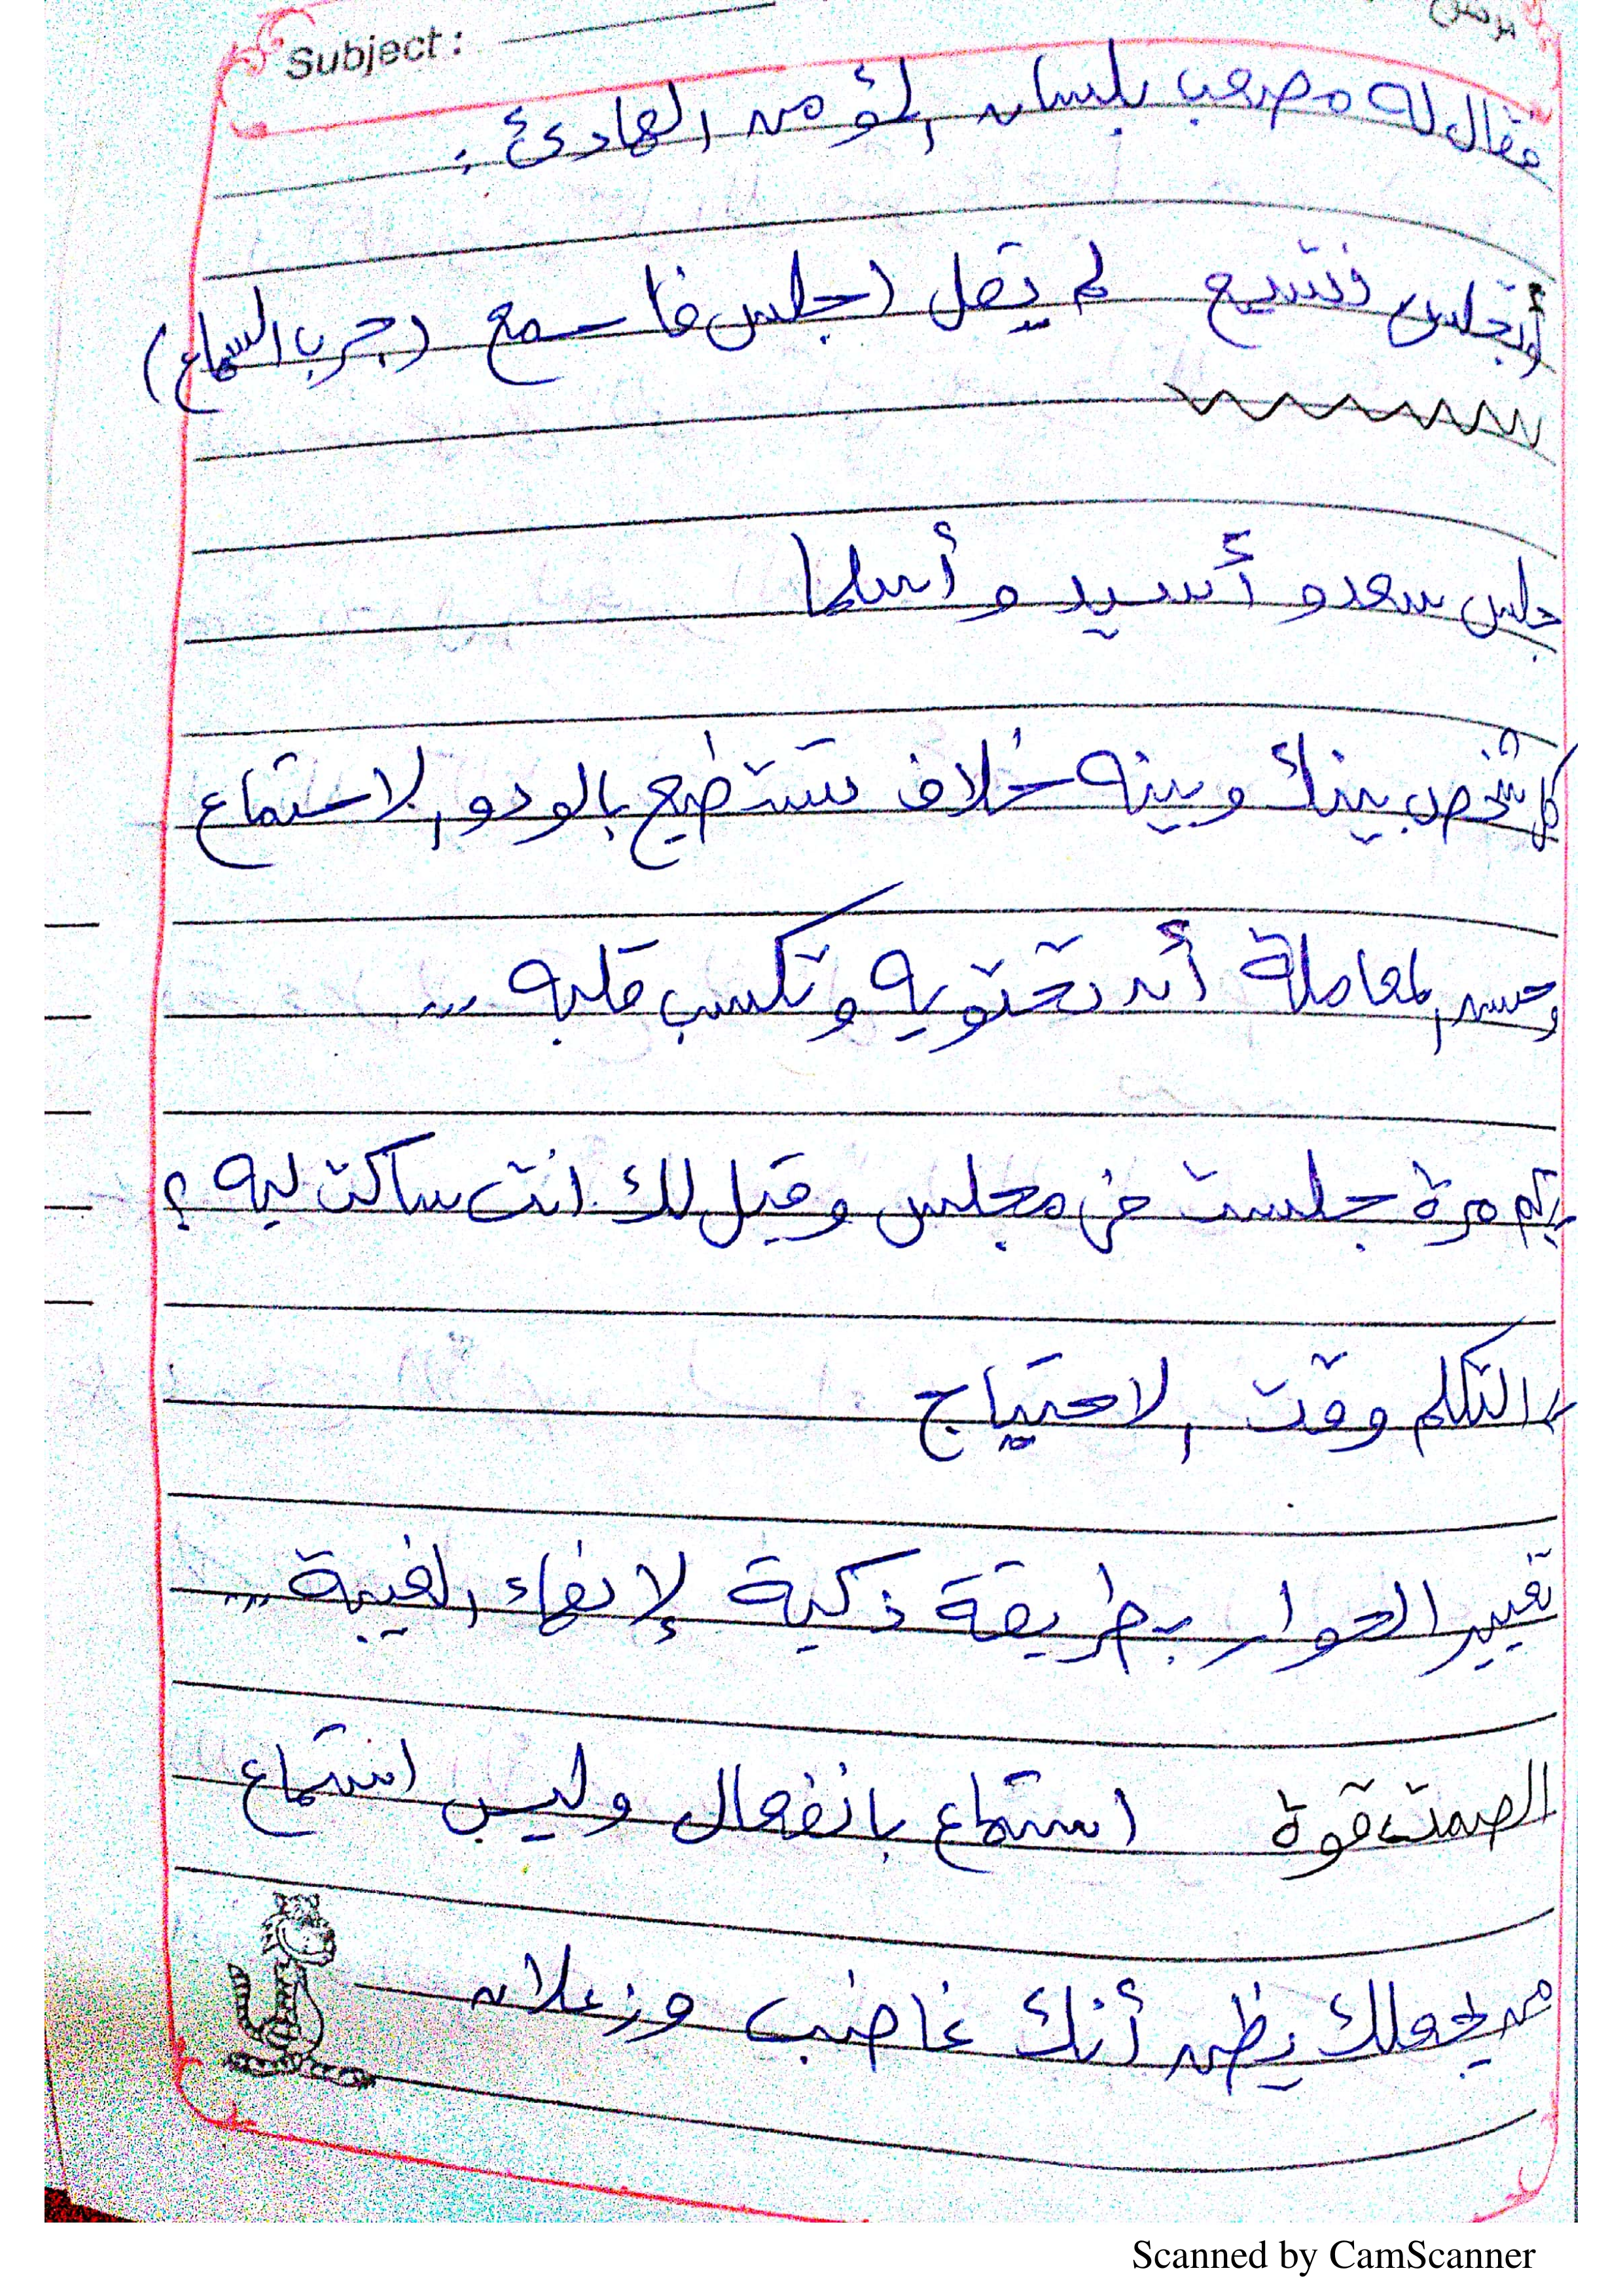 Subject:
فقال له مصعب بلسان المؤمن الهادئ :
أوتجلس فتسمع لم يقل اجلس فاسمع (جرب السماع)
جلس سعد و أسيد و أسلما
كل شخص بينك وبينه خلاف تستطيع بالود و الاستماع
وحسن المعاملة أن تحتويه وتكسب قلبه ...
كم مرة جلست في مجلس وقيل لك انت ساكت ليه ؟
التكلم وقت الاحتياج
تغيير الحوار بطريقة ذكية لإنهاء الغيبة ...
الصمت قوة استماع بانفعال وليس استماع
من يجعلك يظهر أنك غاضب وزعلان
Scanned by CamScanner